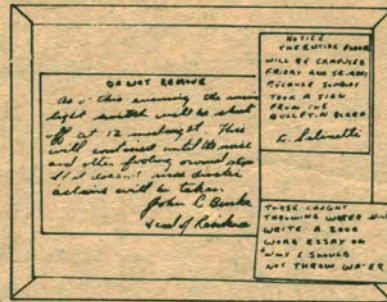 DO NOT REMOVE
As of this evening the main
light switch will be shut
off at 12 midnight. This
will continue until the noise
and other fooling around stops
If it doesn't more drastic
actions will be taken.
John C Burke
Head of Residence
NOTICE
THE ENTIRE FLOOR
WILL BE CAMPUSED
FRIDAY AND SUNDAY
BECAUSE SOMEBODY
TOOK A SIGN
FROM THE
BULLETIN BOARD
THOSE CAUGHT
THROWING WATER WILL
WRITE A 2000
WORD ESSAY ON
"WHY I SHOULD
NOT THROW WATER"